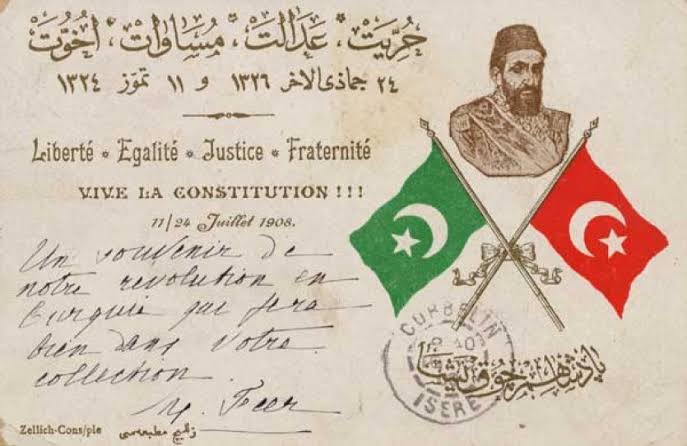 حُرِّيَت، عَدَالَت، مُسَاوَات، اُخُوَّت
٢٤ جماذى الاخر ١٣٢٦ و ١١ تموّز ١٣٢٤
Liberté * Egalité * Justice * Fraternité
VIVE LA CONSTITUTION !!!
11/24 Juillet 1908.
Un souvenir de
notre revolution en
Turquie qui fera
bien dans votre
collection.
Feer
CORBELIN
ISERE
پادشاهم چوق يشا
Zellich-Cons/ple زليچ مطبعه سى